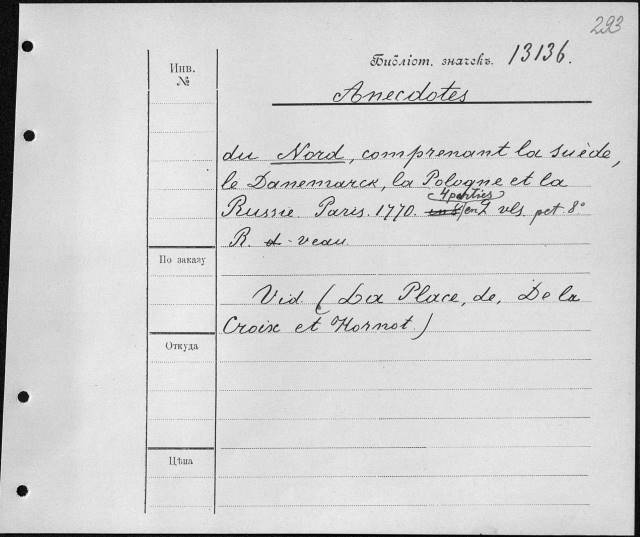 293
Библіот. значекъ. 13136.
Инв.
№
Anecdotes
du Nord, comprenant la suède,
le Danemarck, la Pologne et la
4 parties
Russie. Paris. 1770. en 2 vls. pet. 8°
R. d-veau
По заказу
Vid. (La Place, de, De la
Croix et Hornot.)
Откуда
Цѣна